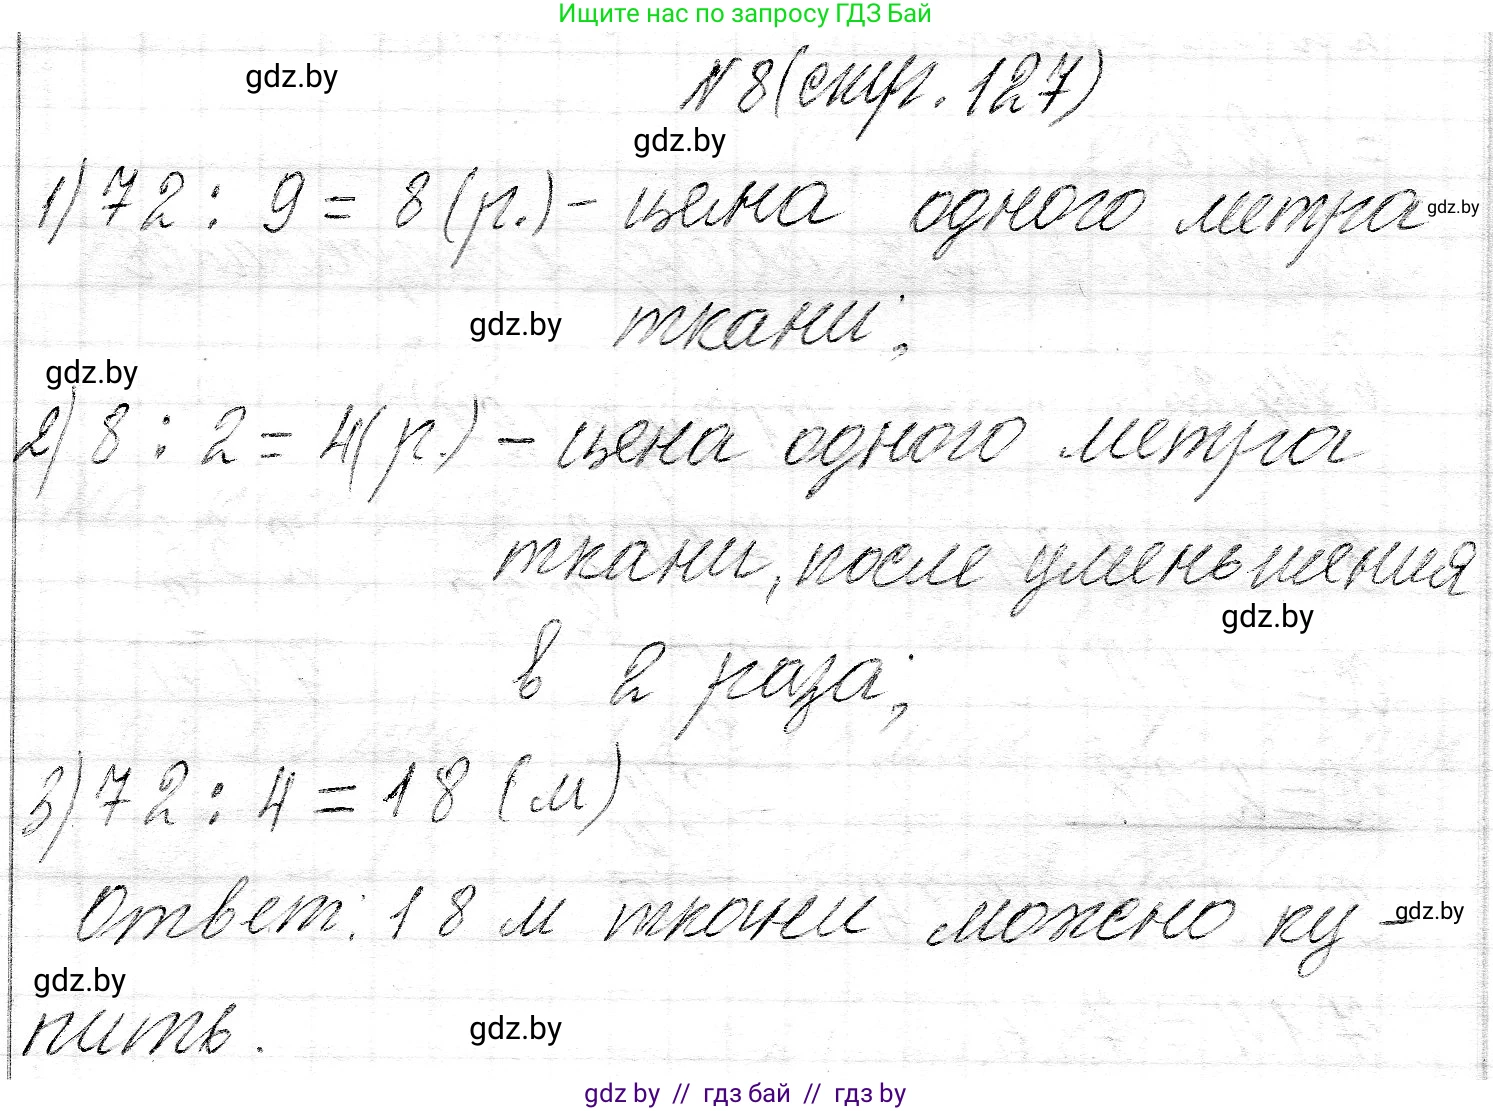 Ищите нас по запросу ГДЗ Бай
gdz.by
№ 8 (стр. 127)
gdz.by
1) 72 : 9 = 8 (р.) - цена одного метра
gdz.by
ткани;
gdz.by
gdz.by
2) 8 : 2 = 4 (р.) - цена одного метра
ткани, после уменьшения
gdz.by
в 2 раза;
3) 72 : 4 = 18 (м)
Ответ: 18 м ткани можно ку-
gdz.by
gdz.by
пить.
gdz.by
gdz by // гдз бай // гдз by